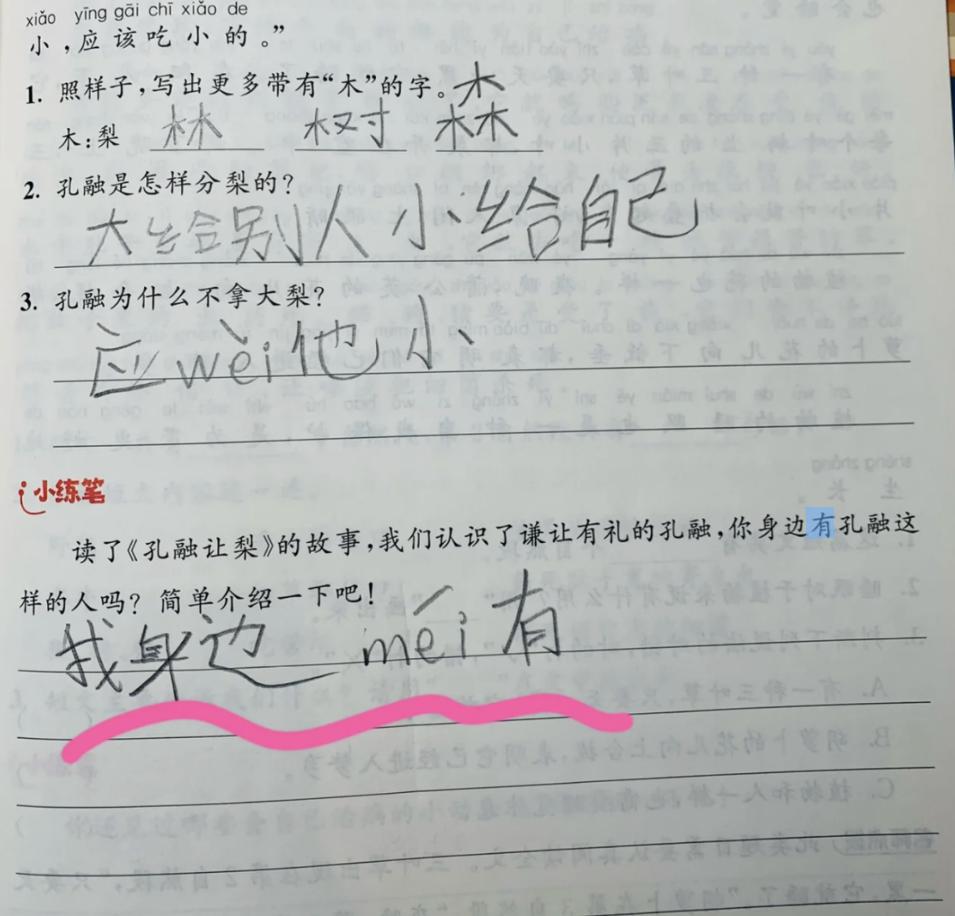 xiǎo yīng gāi chī xiǎo de
小,应该吃小的。”
1. 照样子,写出更多带有“木”的字。木
木:梨 林 树 林
2. 孔融是怎样分梨的?
大给别人小给自己
3. 孔融为什么不拿大梨?
应wèi他小
小练笔
读了《孔融让梨》的故事,我们认识了谦让有礼的孔融,你身边有孔融这
样的人吗? 简单介绍一下吧!
我身边 méi 有